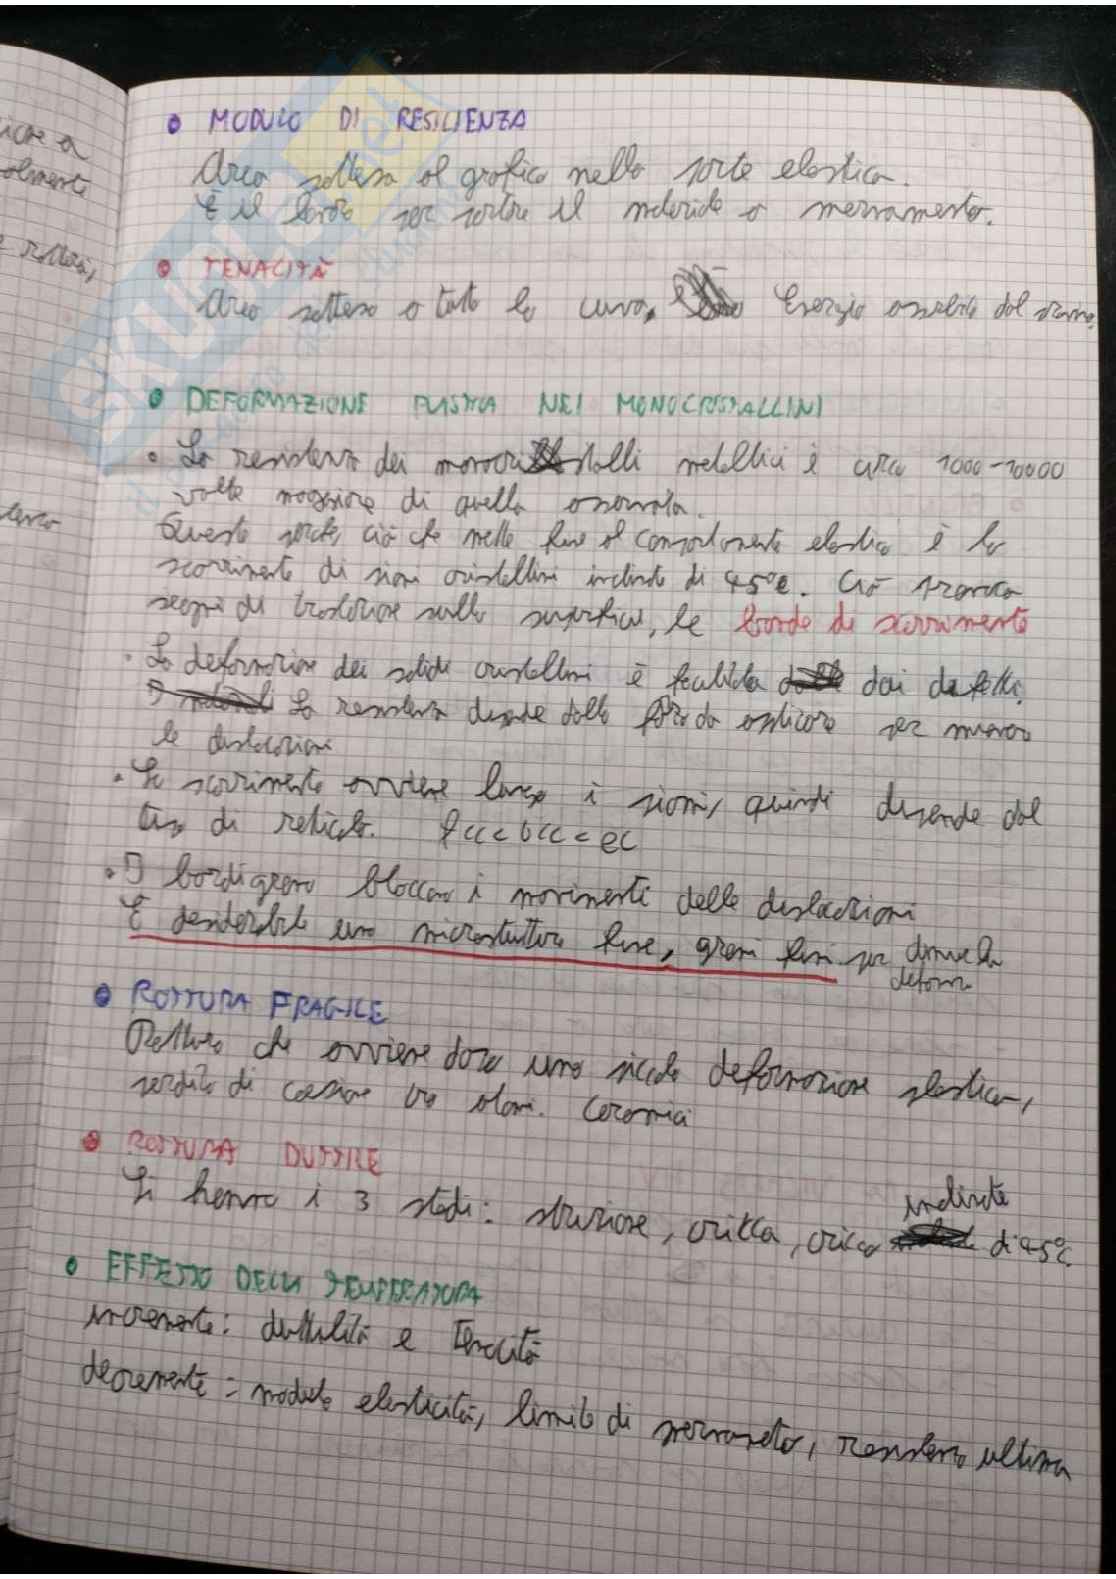 • MODULO DI RESILIENZA
Area sottesa al grafico nella parte elastica.
È il lavoro per portare il materiale a snervamento.
• TENACITÀ
Area sottesa a tutta la curva, Energia assorbita dal
• DEFORMAZIONE PLASTICA NEI MONOCRISTALLINI
• La resistenza dei monocristalli metallici è circa 1000-10000
volte maggiore di quella osservata.
Questo perché, ciò che mette fine al comportamento elastico è lo
scorrimento di piani cristallini inclinati di 45°. Ciò provoca
segni di traslazione sulla superficie, le bande di scorrimento
• La deformazione dei solidi cristallini è facilitata dai difetti.
La resistenza dipende dalla forza da applicare per muovere
le dislocazioni
• Lo scorrimento avviene lungo i piani, quindi dipende dal
tipo di reticolo. fcc < bcc < ec
• I bordi grano bloccano i movimenti delle dislocazioni
È desiderabile una microstruttura fine, grani fini per
• ROTTURA FRAGILE
Rottura che avviene dopo una piccola deformazione plastica,
perdita di coesione tra atomi. Ceramici
• ROTTURA DUTTILE
Si hanno i 3 stadi: strizione, cricca, cricca inclinata di 45°
• EFFETTO DELLA TEMPERATURA
incremento: duttilità e tenacità
decremento = modulo elasticità, limite di snervamento, resistenza ultima
icare a
olmente
rottura,
SKUOLA